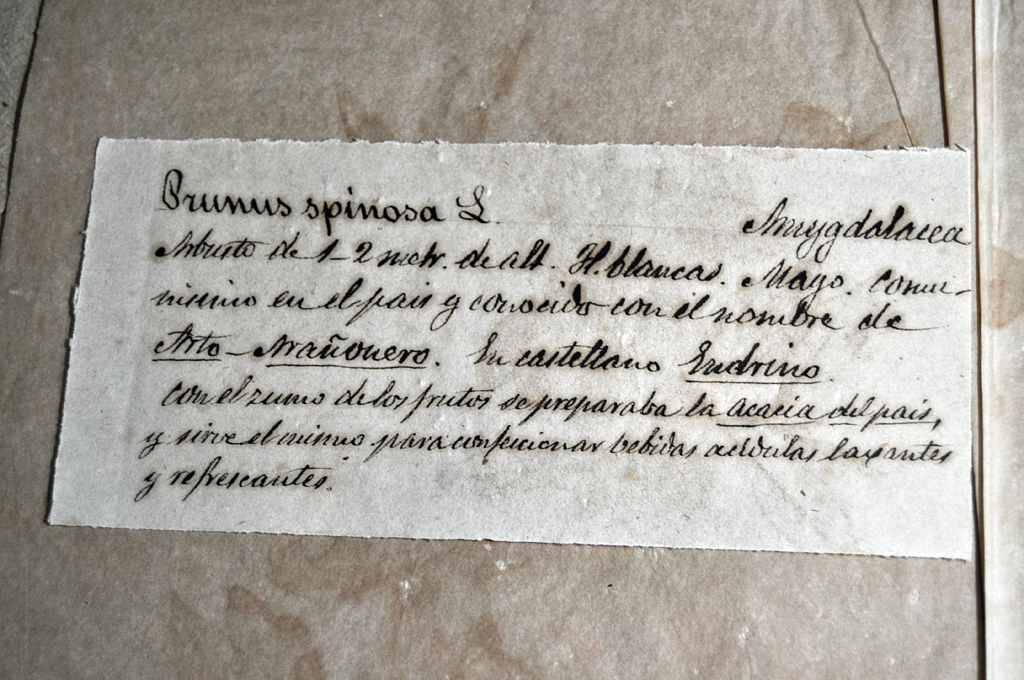 Prunus spinosa L.
Amygdalacea
Arbusto de 1-2 metr. de alt. H. blancas. Mayo. comu-
nisimo en el pais y conocido con el nombre de
Arto - Arañonero. En castellano Endrino.
con el zumo de los frutos se preparaba la acacia del pais,
y sirve el mismo para confeicionar bebidas acidulas laxantes
y refrescantes.